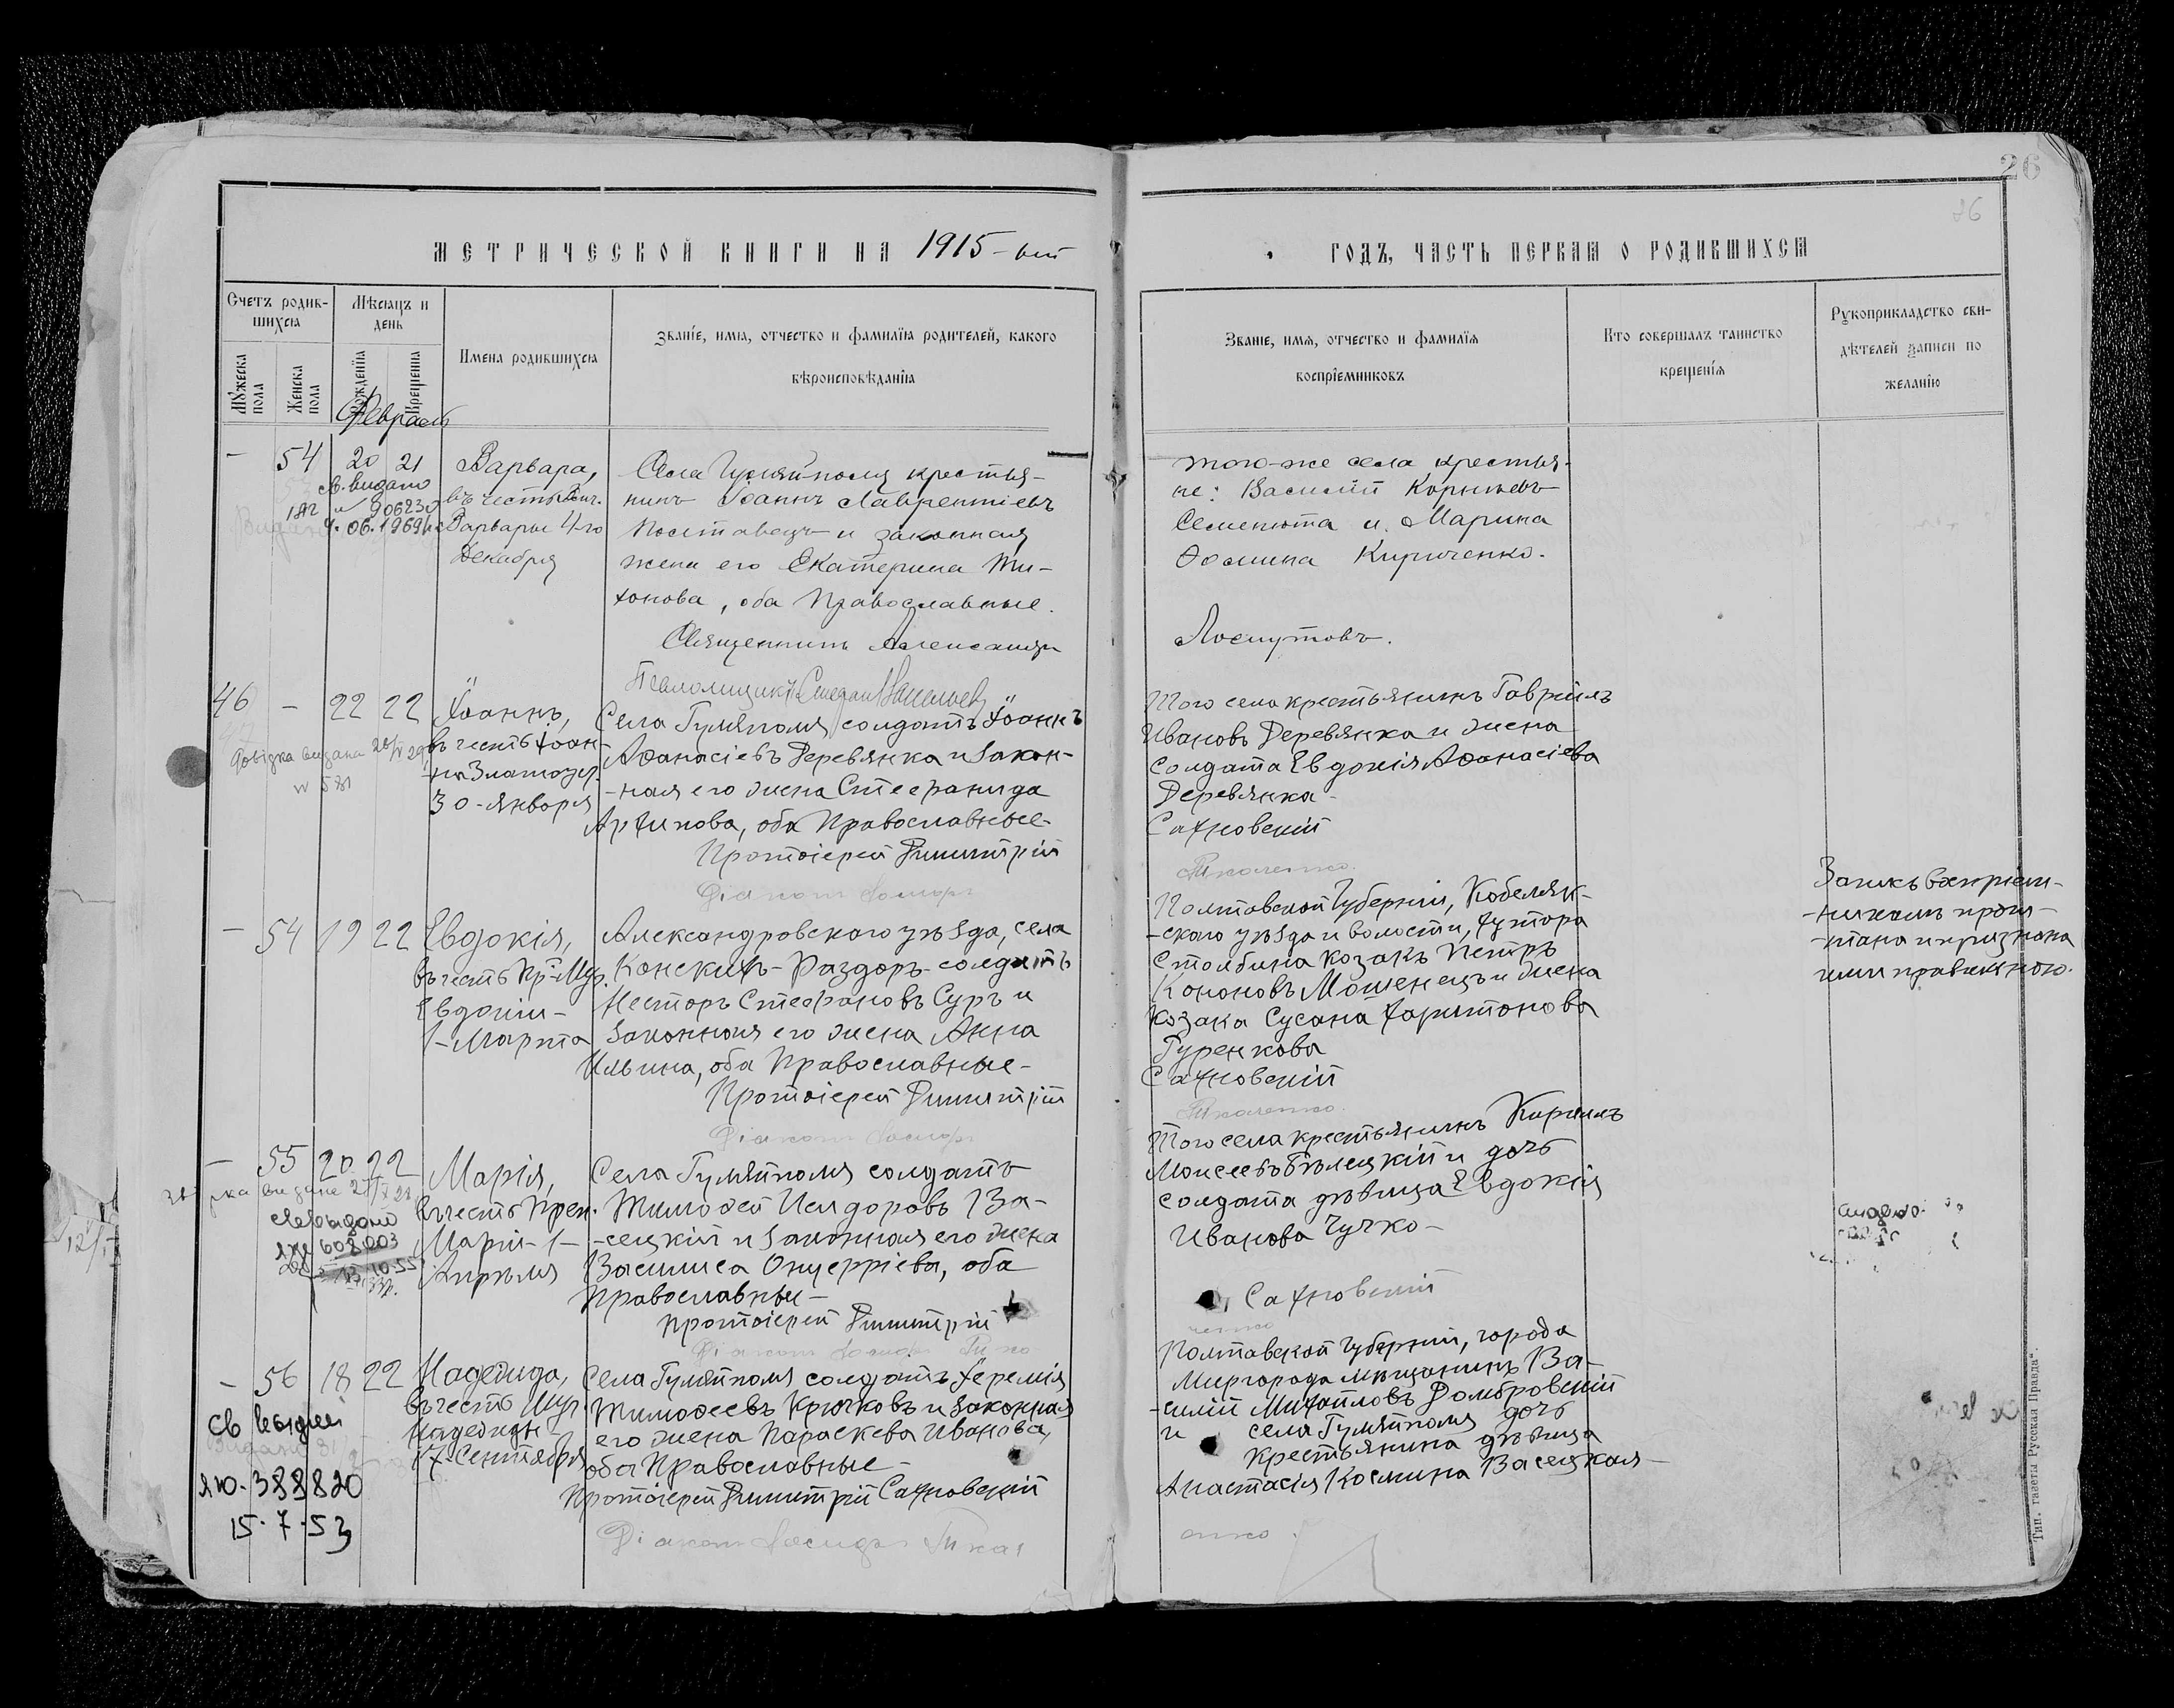 26
26
МЕТРИЧЕСКОЙ КНИГИ НА 1915-ый
ГОДЪ, ЧАСТЬ ПЕРВАЯ О РОДИВШИХСЯ
Счетъ родив-
шихся
Мѣсяцъ и
день
Имена родившихся
Званіе, имя, отчество и фамилія родителей, какого
вѣроисповѣданія
Мужеска
пола
Женска
пола
Рожденія
Крещенія
Званіе, имя, отчество и фамилія
воспріемниковъ
Кто совершалъ таинство
крещенія
Рукоприкладство сви-
дѣтелей записи по
желанію
Февраль
- 54 20 21
св. видано
906230
06.1969
Варвара,
въ честь
Варвары 4-го
Декабря
Села Гуляйполя крестья-
нинъ Іоаннъ Лаврентіевъ
и законная
жена его Екатерина Ти-
хонова, оба Православные.
Священникъ Александръ
того-же села крестья-
не: Василій Корніевъ
Семенюта и Марина
Ѳомина Кириченко.
Лоскутовъ.
Псаломщикъ
46 - 22 22
Довідка видана
Іоаннъ,
въ честь Іоан-
на Златоуст.
30-января
Села Гуляйполя солдатъ Іоаннъ
Аѳанасіевъ Деревянка и закон-
-ная его жена Стефанида
Архипова, оба Православные-
Протоіерей Димитрій
Діаконъ
Того села крестьянинъ Гавріилъ
Ивановъ Деревянка и жена
солдата Евдокія Аѳанасіева
Деревянка-
Сахновскій
- 54 19 22
Евдокія,
въ честь Пр.-Муч.
Евдокіи-
1-Марта
Александровскаго уѣзда, села
Конскихъ-Раздоръ-солдатъ
Несторъ Стефановъ Суръ и
законная его жена Анна
Ильина, оба Православные-
Протоіерей Димитрій
Діаконъ
Полтавской Губерніи, Кобеляк-
-скаго уѣзда и волости, хутора
Столбина козакъ Петръ
Кононовъ Мошенецъ и жена
козака Сусана Харитонова
Гуренкова
Сахновскій
Запись воспріем-
-никамъ прочи-
-тана и признана
ими правильною.
- 55 20 22
видана
608203
10.55
Марія,
въ честь Преп.
Маріи-1-
Апрѣля
Села Гуляйполя солдатъ
Тимоѳей Исидоровъ Ва-
-сецкій и законная его жена
Василиса Онуфріева, оба
Православные-
Протоіерей Димитрій
Діаконъ
Того села крестьянинъ Кириллъ
Моисеевъ Бѣлецкій и дочь
солдата дѣвица Евдокія
Иванова Чучко-
Сахновскій
12/
- 56 18 22
св выдан
ЯЮ. 388820
15.7.53
Надежда,
въ честь Муч.
Надежды-
17-Сентября
Села Гуляйполя солдатъ Іеремія
Тимоѳеевъ Крючковъ и законная
его жена Параскева Иванова,
оба Православные-
Протоіерей Димитрій Сахновскій
Діаконъ
Полтавской Губерніи, города
Миргорода мѣщанинъ Ва-
-силій Михайловъ Домбровскій
и села Гуляйполя дочь
крестьянина дѣвица
Анастасія Космина Васецкая-
Тип. газеты „Русская Правда“.